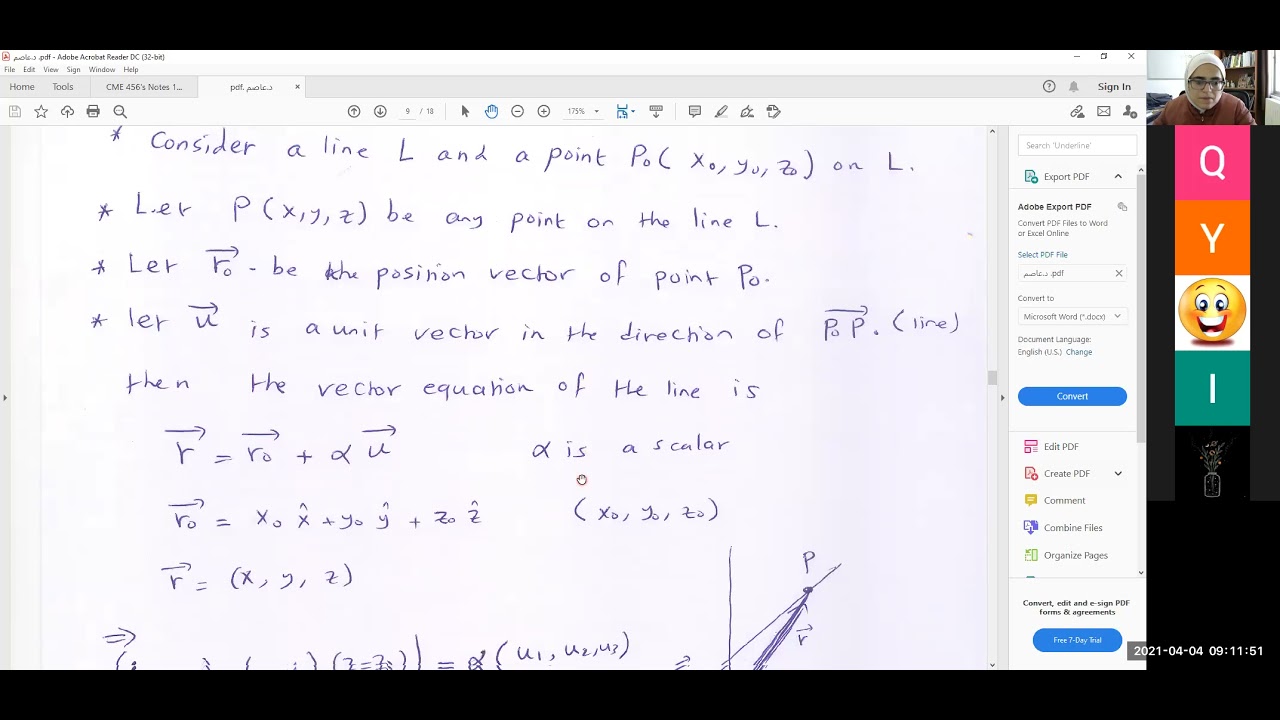 د.عاصم .pdf - Adobe Acrobat Reader DC (32-bit)
File Edit View Sign Window Help
Home Tools CME 456's Notes 1... pdf. د.عاصم × Sign In
9 / 18 175%
* Consider a line L and a point P0( x0, y0, z0) on L.
* Let P (x,y,z) be any point on the line L.
* Let r0 - be the position vector of point P0.
* let u is a unit vector in the direction of P0P. (line)
then the vector equation of the line is
r = r0 + α u α is a scalar
r0 = x0 x̂ + y0 ŷ + z0 ẑ (x0, y0, z0)
r = (x, y, z)
P
r
⇒
(z-z0) = α (u1, u2, u3)
Search 'Underline'
Export PDF
Adobe Export PDF
Convert PDF Files to Word
or Excel Online
Select PDF File
د.عاصم .pdf ×
Convert to
Microsoft Word (*.docx)
Document Language:
English (U.S.) Change
Convert
Edit PDF
Create PDF
Comment
Combine Files
Organize Pages
Convert, edit and e-sign PDF
forms & agreements
Free 7-Day Trial
Q
Y
I
2021-04-04 09:11:51